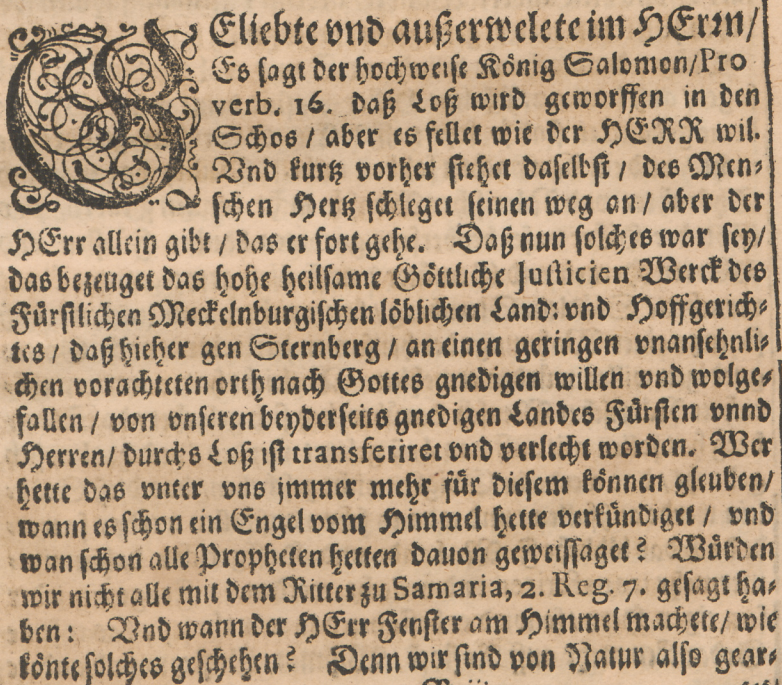 GEliebte vnd außerwelete im HErrn/
Es sagt der hochweise König Salomon/Pro
verb. 16. daß Loß wird geworffen in den
Schos / aber es fellet wie der HERR wil.
Vnd kurtz vorher stehet daselbst / des Men⸗
schen Hertz schleget seinen weg an / aber der
HErr allein gibt / das er fort gehe. Daß nun solches war sey/
das bezeuget das hohe heilsame Göttliche Justicien Werck des
Fürstlichen Meckelnburgischen löblichen Land: vnd Hoffgerich⸗
tes / daß hieher gen Sternberg / an einen geringen vnansehnli⸗
chen vorachteten orth nach Gottes gnedigen willen vnd wolge⸗
fallen / von vnseren beyderseits gnedigen Landes Fürsten vnnd
Herren/ durchs Loß ist transferiret vnd verlecht worden. Wer
hette das vnter vns jmmer mehr für diesem können gleuben/
wann es schon ein Engel vom Himmel hette verkündiget / vnd
wan schon alle Propheten hetten dauon geweissaget? Würden
wir nicht alle mit dem Ritter zu Samaria, 2. Reg. 7. gesagt ha⸗
ben: Vnd wann der HErr Fenster am Himmel machete/ wie
könte solches geschehen? Denn wir sind von Natur also gear⸗